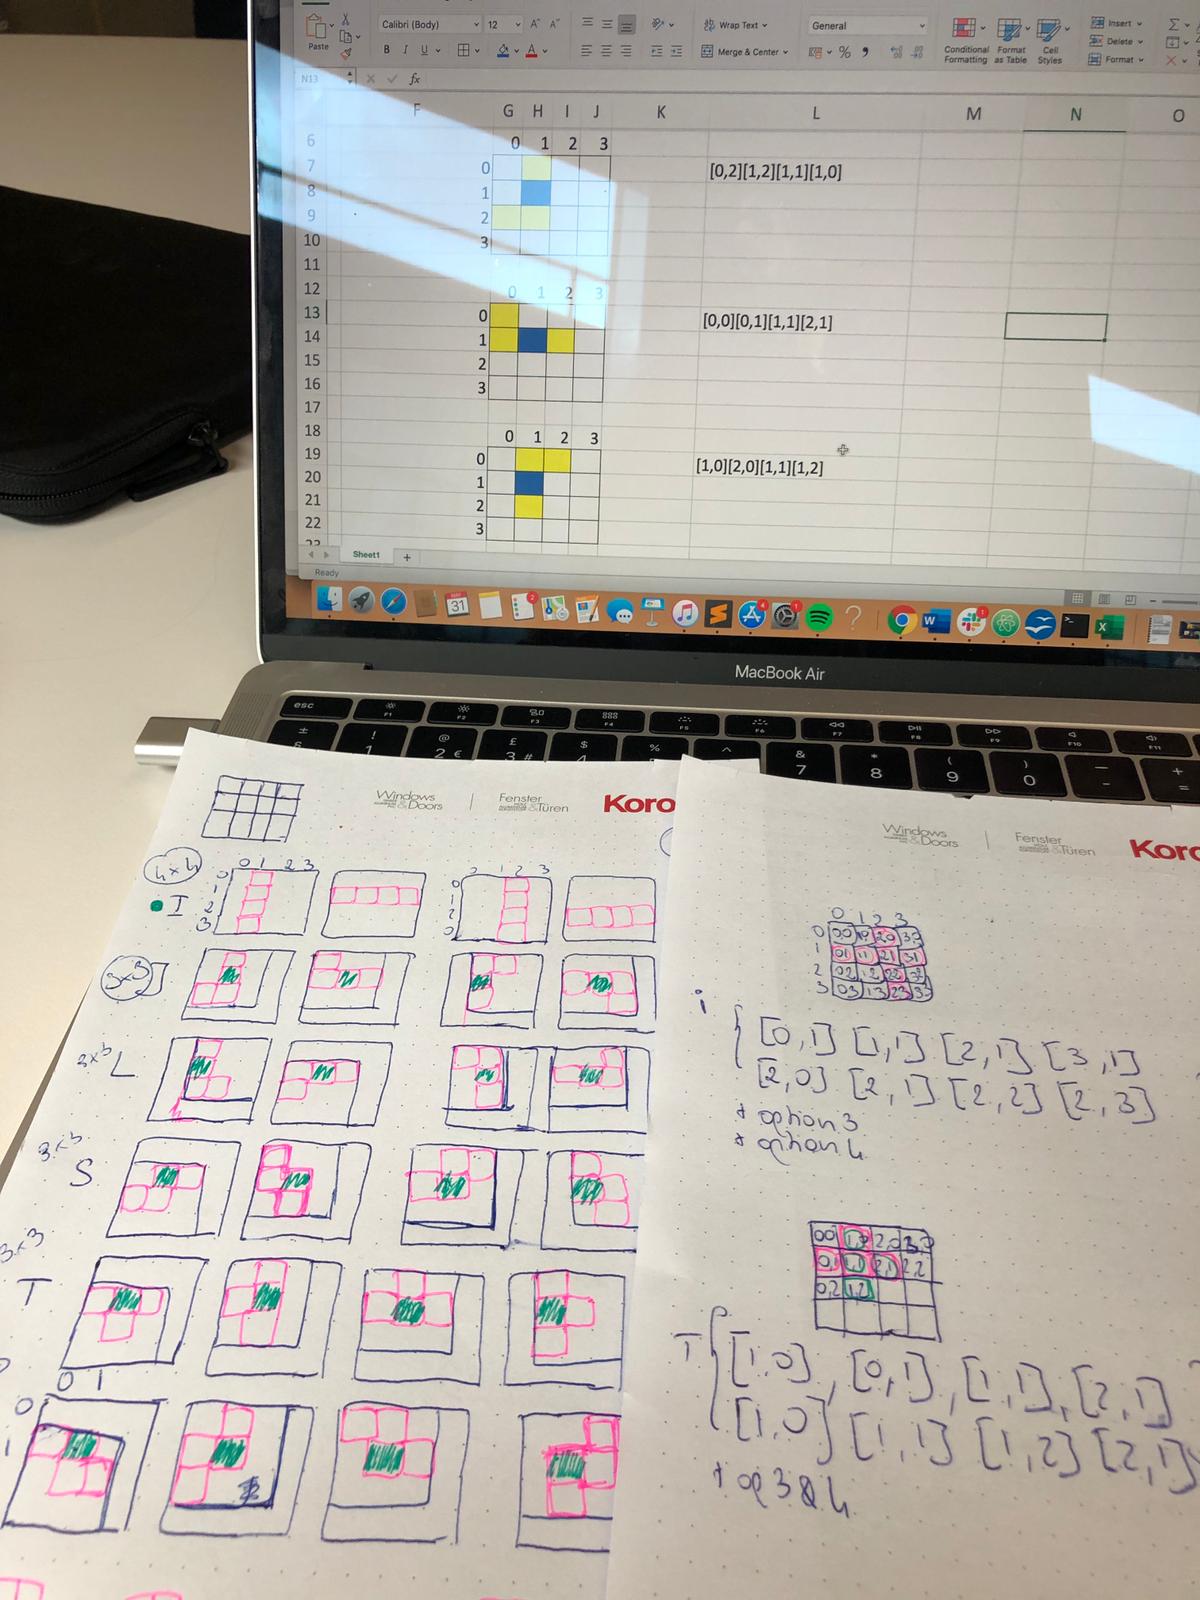 Calibri (Body) 12 A^ A˅ Wrap Text General Insert
Paste B I U A Merge & Center % Conditional Formatting Format as Table Cell Styles Delete
Format
N13 fx
F G H I J K L M N O
6 0 1 2 3
7 0 [0,2][1,2][1,1][1,0]
8 1
9 2
10 3
11
12 0 1 2 3
13 0 [0,0][0,1][1,1][2,1]
14 1
15 2
16 3
17
18 0 1 2 3
19 0 [1,0][2,0][1,1][1,2]
20 1
21 2
22 3
23
Sheet1 +
Ready
31
MacBook Air
esc F1 F2 F3 F4 F5 F6 F7 F8 F9 F10 F11
± § ! 1 @ 2 € £ 3 # $ 4 % ^ & 7 * 8 ( 9 ) 0 _ - + =
Windows & Doors | Fenster & Türen Koro
4x4 0 1 2 3
I 0 1 2 3
3x3 J
3x3 L
3x3
S
3x3
T
0 1
0
1
Windows & Doors | Fenster & Türen Korc
0 1 2 3
0 00 10 20 30
1 01 11 21 31
2 02 12 22 32
3 03 13 23 33
i { [0,1] [1,1] [2,1] [3,1]
[2,0] [2,1] [2,2] [2,3]
+ option 3
+ option 4
00 1,0 2,0 3,0
0,1 1,1 2,1 2,2
0,2 1,2
T { [1,0], [0,1], [1,1], [2,1]
[1,0] [1,1] [1,2] [2,1]
+ op 3 & 4